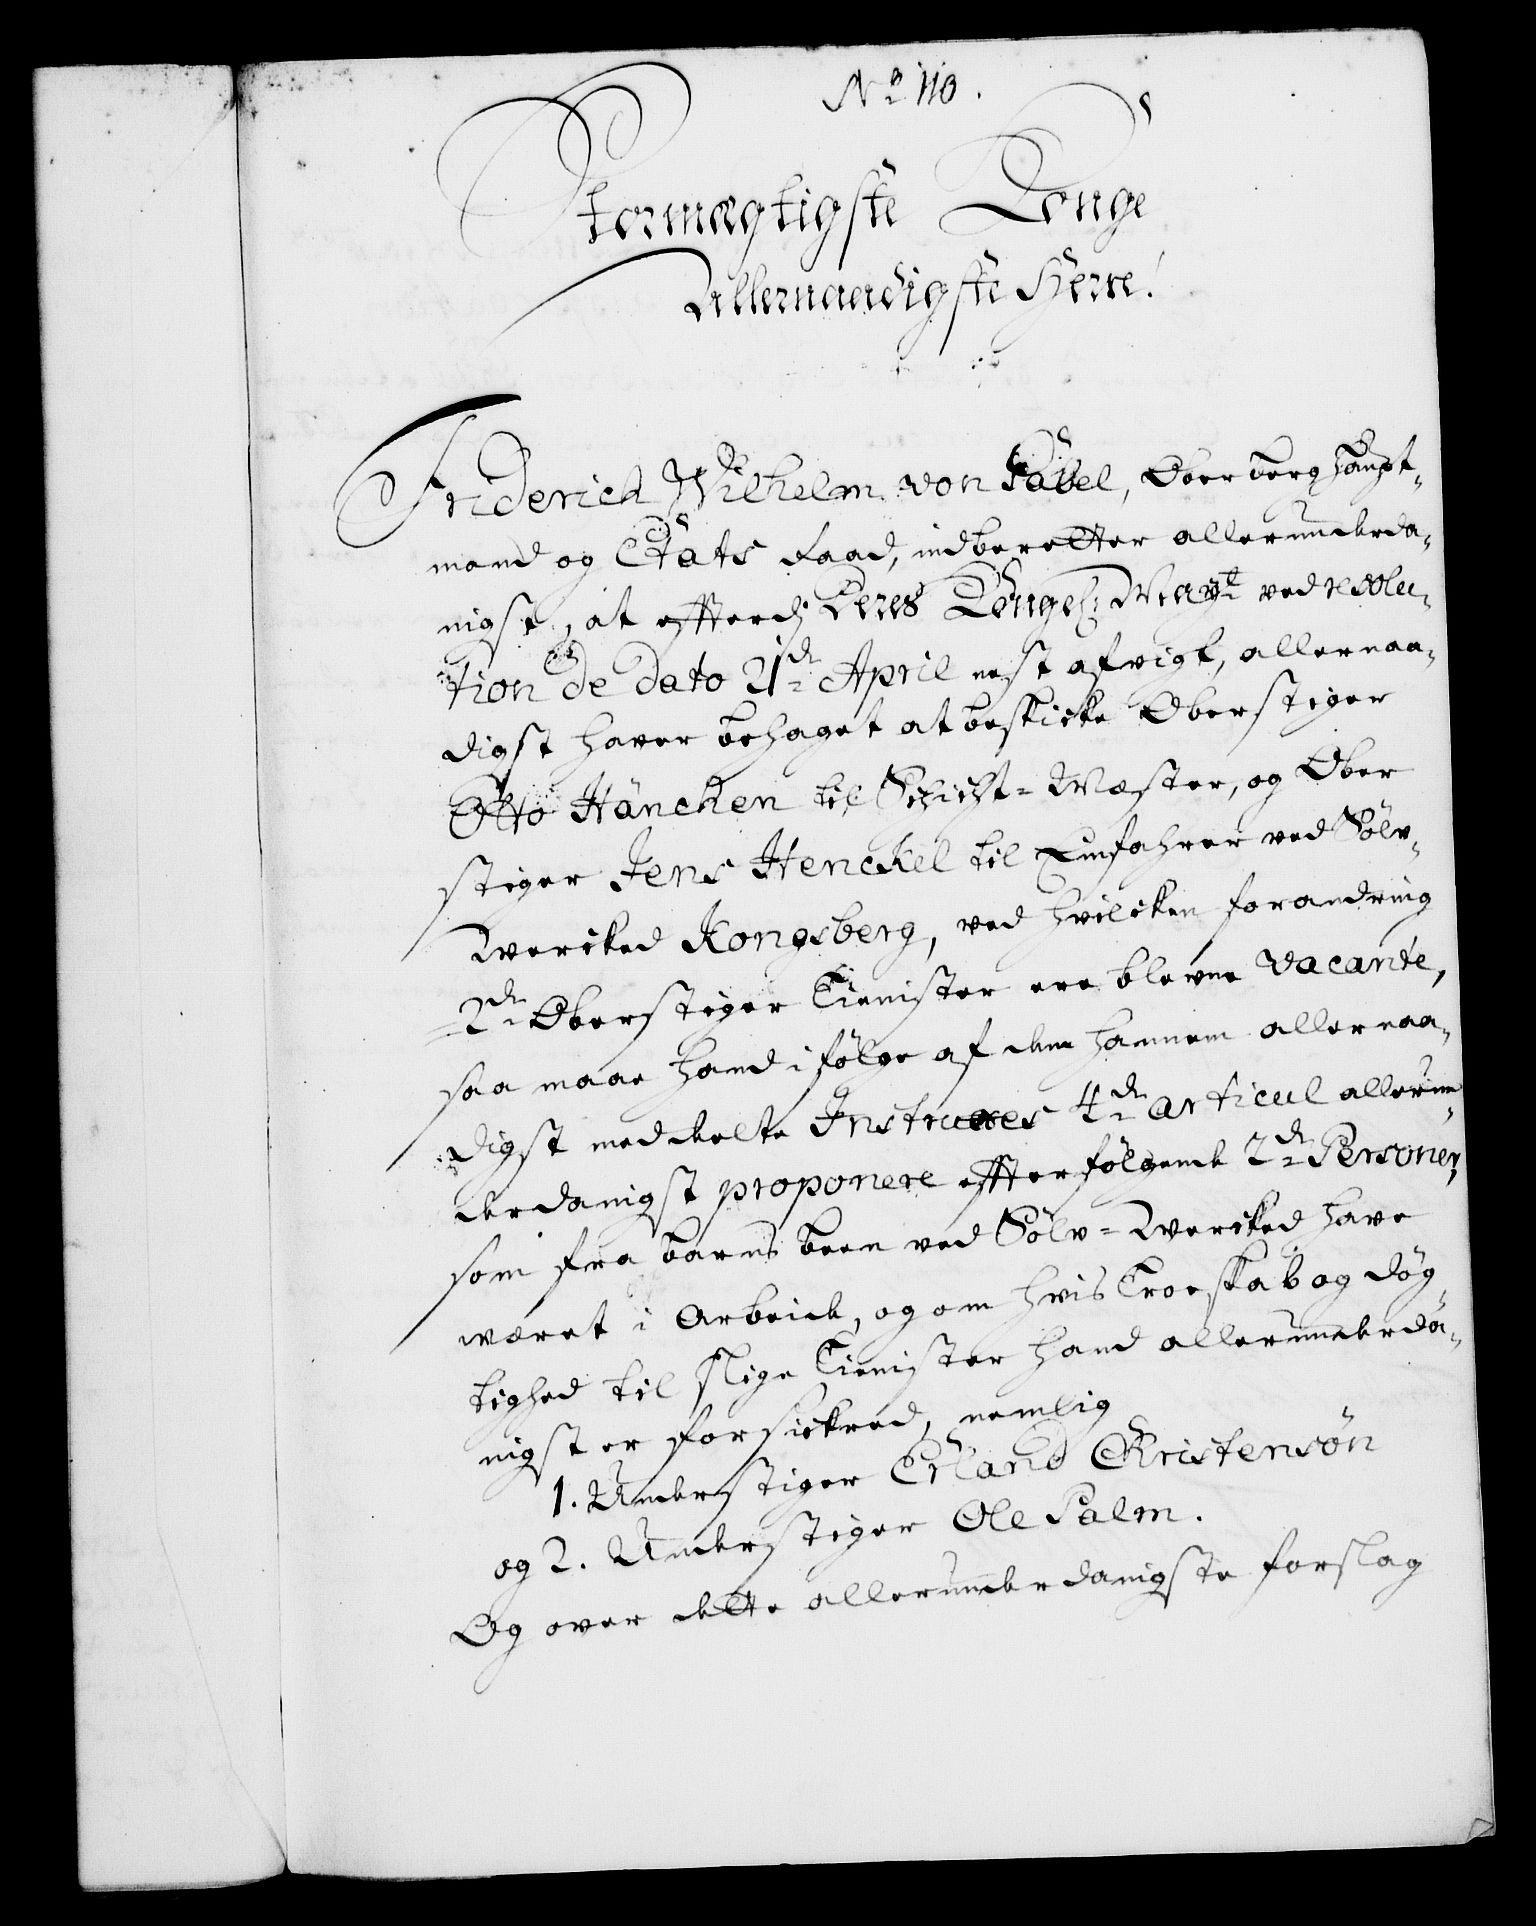 No 110.
Stormægtigste Konge
Allernaadigste Herre!
Friderich Wilhelm von Gabel, Oberberghaupt-
mand og Etats Raad, indberetter allerunderda-
nigst, at efterdj Deres Kongel: Mayt ved resolu-
tion de dato 21de April nest afvigt, allernaa-
digst haver behaget at beskicke Oberstiger
Otto Hänchen til Schicht-Mæster, og Ober
stiger Jens Henckel til Einfahrer ved Sölv-
Wercked Kongsberg, ved hvilcken forandring
2de Oberstiger Tienister ere blevne vacante,
saa maae hand i følge af den hannem allernaa-
digst meddeelte Instruxes 4de articul allerun-
derdanigst proponere effterfølgende 2de Personer,
som fra barns been ved Sölv-Wercked have
wæret i Arbeide, og om hvis Troeskab og døg-
tighed til slige Tienister hand allerunderda-
nigst er forsickred, nemlig
1. Understiger Erland Christensøn
og 2. Understiger Ole Palm.
Og over dette allerunderdanigste forslag